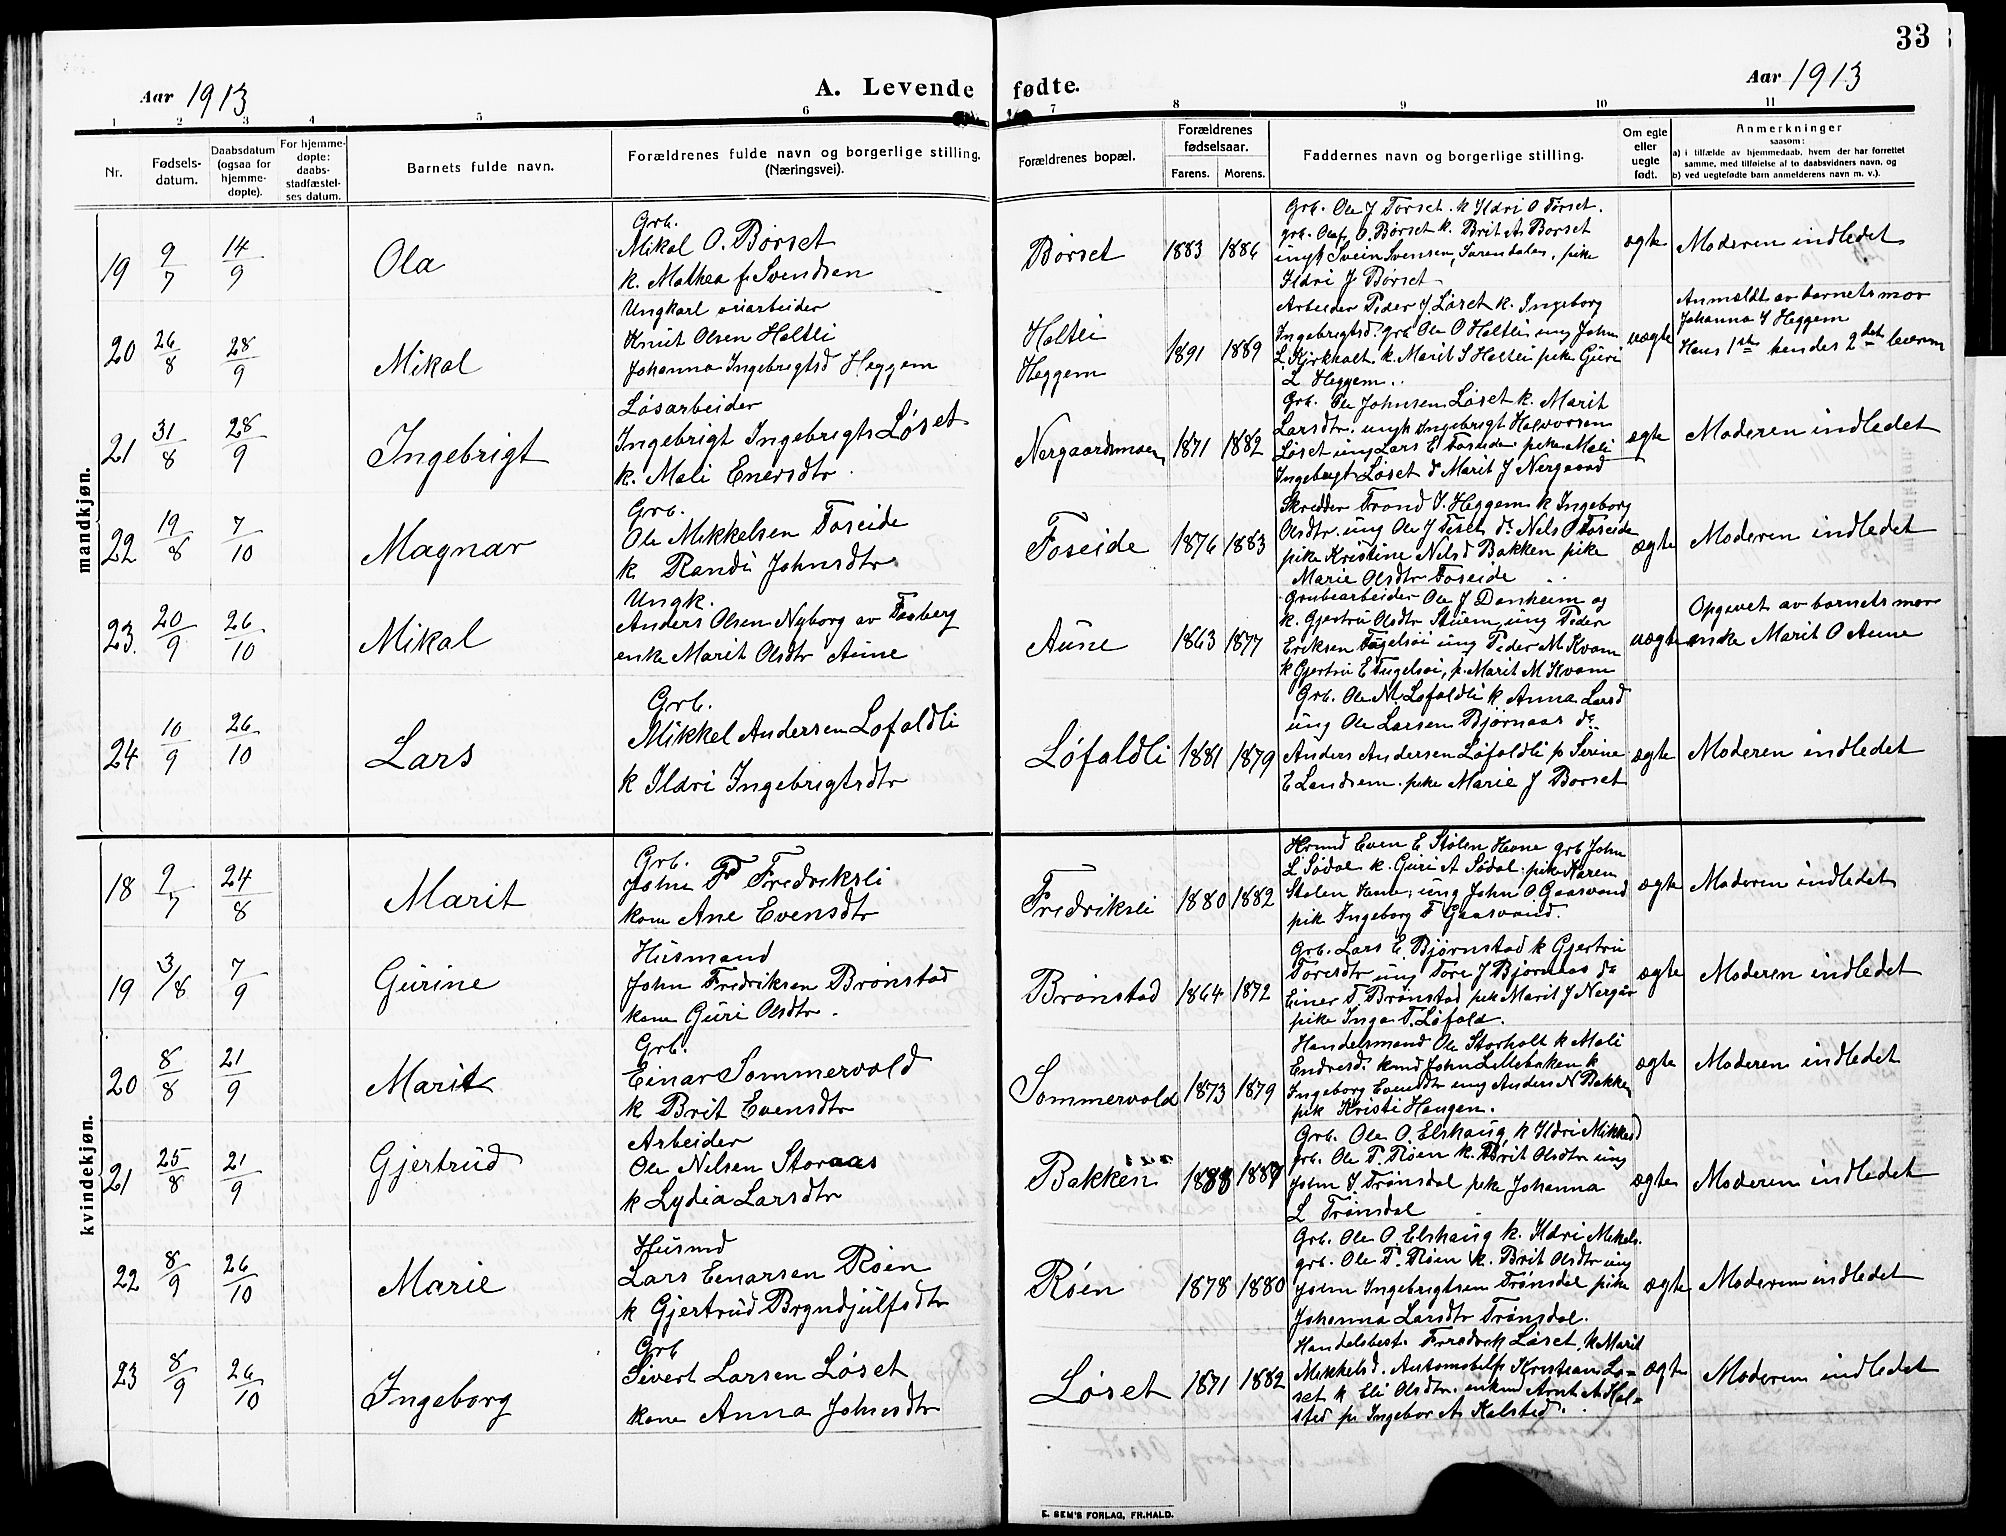 33
Aar 1913
A. Levende fødte.
Aar 1913
1 2 3 4 5 6 7 8 9 10 11
Nr.
Fødsels-
datum.
Daabsdatum
(ogsaa for
hjemme-
døpte).
For hjemme-
døpte:
daabs-
stadfæstel-
ses datum.
Barnets fulde navn.
Forældrenes fulde navn og borgerlige stilling.
(Næringsvei).
Forældrenes bopæl.
Forældrenes
fødselsaar.
Farens. Morens.
Faddernes navn og borgerlige stilling.
Om egte
eller
uegte
født.
Anmerkninger
saasom:
a) i tilfælde av hjemmedaab, hvem der har forrettet
samme, med tilføielse af to daabsvidners navn, og
b) ved uegtefødte barn anmelderens navn m. v.).
mandkjøn.
19 9/7 14/9 Ola
Grb.
Mikal O. Børset
k. Mathea f. Svendsen
Børset 1883 1886
Grb. Ole J Torset. k Ildri O Torset.
grb. Olaf O. Børset k. Brit A. Børset
ungk Svein Svensen, Surendalen, pike
Ildri J Børset
ægte Moderen indledet
20 26/8 28/9 Mikal
Ungkarl
Knut Olsen Haltli
Johanna Ingebrigtsd Heggem
Haltli
Heggem
1891 1889
Arbeider Peder J. Løset k. Ingeborg
Ingebrigtsd. grb Ole O Haltli ung John
L. Kjirkholt, k. Marit S Haltli pike Guri
L Heggem..
uægte
Anmeldt av barnets mor
Johanna I Heggem
Hans 1ste hendes 2det leierm
21 31/8 28/9 Ingebrigt
Løsarbeider
Ingebrigt Ingebrigts Løset
k. Mali Enersdtr.
Nergaardsmoen 1871 1882
Grb. Ole Johnsen Løset k. Marit
Larsdtr. ungk Ingebrigt Halvorsen
Løset ung Lars E Foseide pike Mali
Ingebrigts Løset d Marit J Nergaard
ægte Moderen indledet
22 19/8 7/10 Magnar
Grb.
Ole Mikkelsen Foseide
k Randi Johnsdtr.
Foseide 1876 1883
Skredder Trond I. Heggem k Ingeborg
Olsdtr. ung Ole J do Nels O Foseide
pike Kristine Nilsd Bakken pike
Marie Olsdtr Foseide
ægte Moderen indledet
23. 20/9 26/10 Mikal
Ungk.
Anders Olsen Nyborg av
enke Marit Olsdtr Aune
Aune 1863 1877
Grubearbeider Ole J Donheim og
k. Gjertru Olsdtr Stuem ung Peder
Eriksen Fugelsøi ung Peder M Kvam
k Gjertru E Fugelsøi, p. Marit M Kvam
uægte
Opgevet av barnets mor
enke Marit O Aune
24 10/9 26/10 Lars
Grb.
Mikkel Andersen Lofaldli
k Ildri Ingebrigtsdtr
Løfaldli 1881 1879
Grb. Ole M. Lofaldli k Anna Larsd
ung Ole Larsen Bjørnaas do
Anders Andersen Løfaldli p Serine
E Landsem. pike Marie J Børset
ægte Moderen indledet
kvindekjøn.
18 9/7 24/8 Marit
Grb.
John Fredriksli
kone Ane Evensdtr
Fredriksli 1880 1882
Even E Stølen Hevne grb John
L Sødal k. Guri A Sødal. pike Karen
Stølen Hevne; ung John O. Gaasvand
pik Ingeborg F Gaasvand.
ægte Moderen indledet
19 3/8 7/9 Gurine
Husmand
John Fredriksen Brønstad
kone Guri Olsdtr.
Brønstad 1864 1872
Grb. Lars E. Bjørnstad k Gjertru
Toresdtr ung Tore J Bjørnaas do
Einer T. Brønstad pik Marit J Nergår
pike Inga T. Løfald.
ægte Moderen indledet
20 8/8 21/9 Marit
Grb.
Einar Sommervold
k Brit Evensdtr
Sommervold 1873 1879
Handelsmand Ole Storholt k Mali
Endresd. John Lillebakken k
Ingeborg Evensdtr ung Anders N Bakken
pik Kristi Haugen.
ægte Moderen indledet
21 25/8 21/9 Gjertrud
Arbeider
Ole Nilsen Storaas
k Lydia Larsdtr
Bakken 1888 1887
Grb. Ole O. Elshaug, k Ildri Mikkesd
grb. Ole P. Røen k. Brit Olsdtr ung
John I. Trønsdal pike Johanna
L Trønsdal
ægte Moderen indledet
22 8/9 26/10 Marie
Husmd
Lars Einarsen Røen
k Gjertrud Bryndjulfsdtr
Røen 1878 1880
Grb. Ole O. Elshaug k. Ildri Mikels.
grb. Ole P. Røen k. Brit Olsdtr ung
John Ingebrigtsen Trønsdal pike
Johanna Larsdtr Trønsdal.
ægte Moderen indledet
23 8/9 26/10 Ingeborg
Grb
Sivert Larsen Løset
kone Anna Johnsdtr
Løset 1871 1882
Handelsbest. Fredrik Løset, k Marit
Mikkelsd. Automobilf Kristian Lø=
set k Eli Olsdtr. enkmd Arnt A Hal=
sted p. Ingebor A Halsted.
ægte Moderen indledet
E. SEM'S FORLAG, FR.HALD.